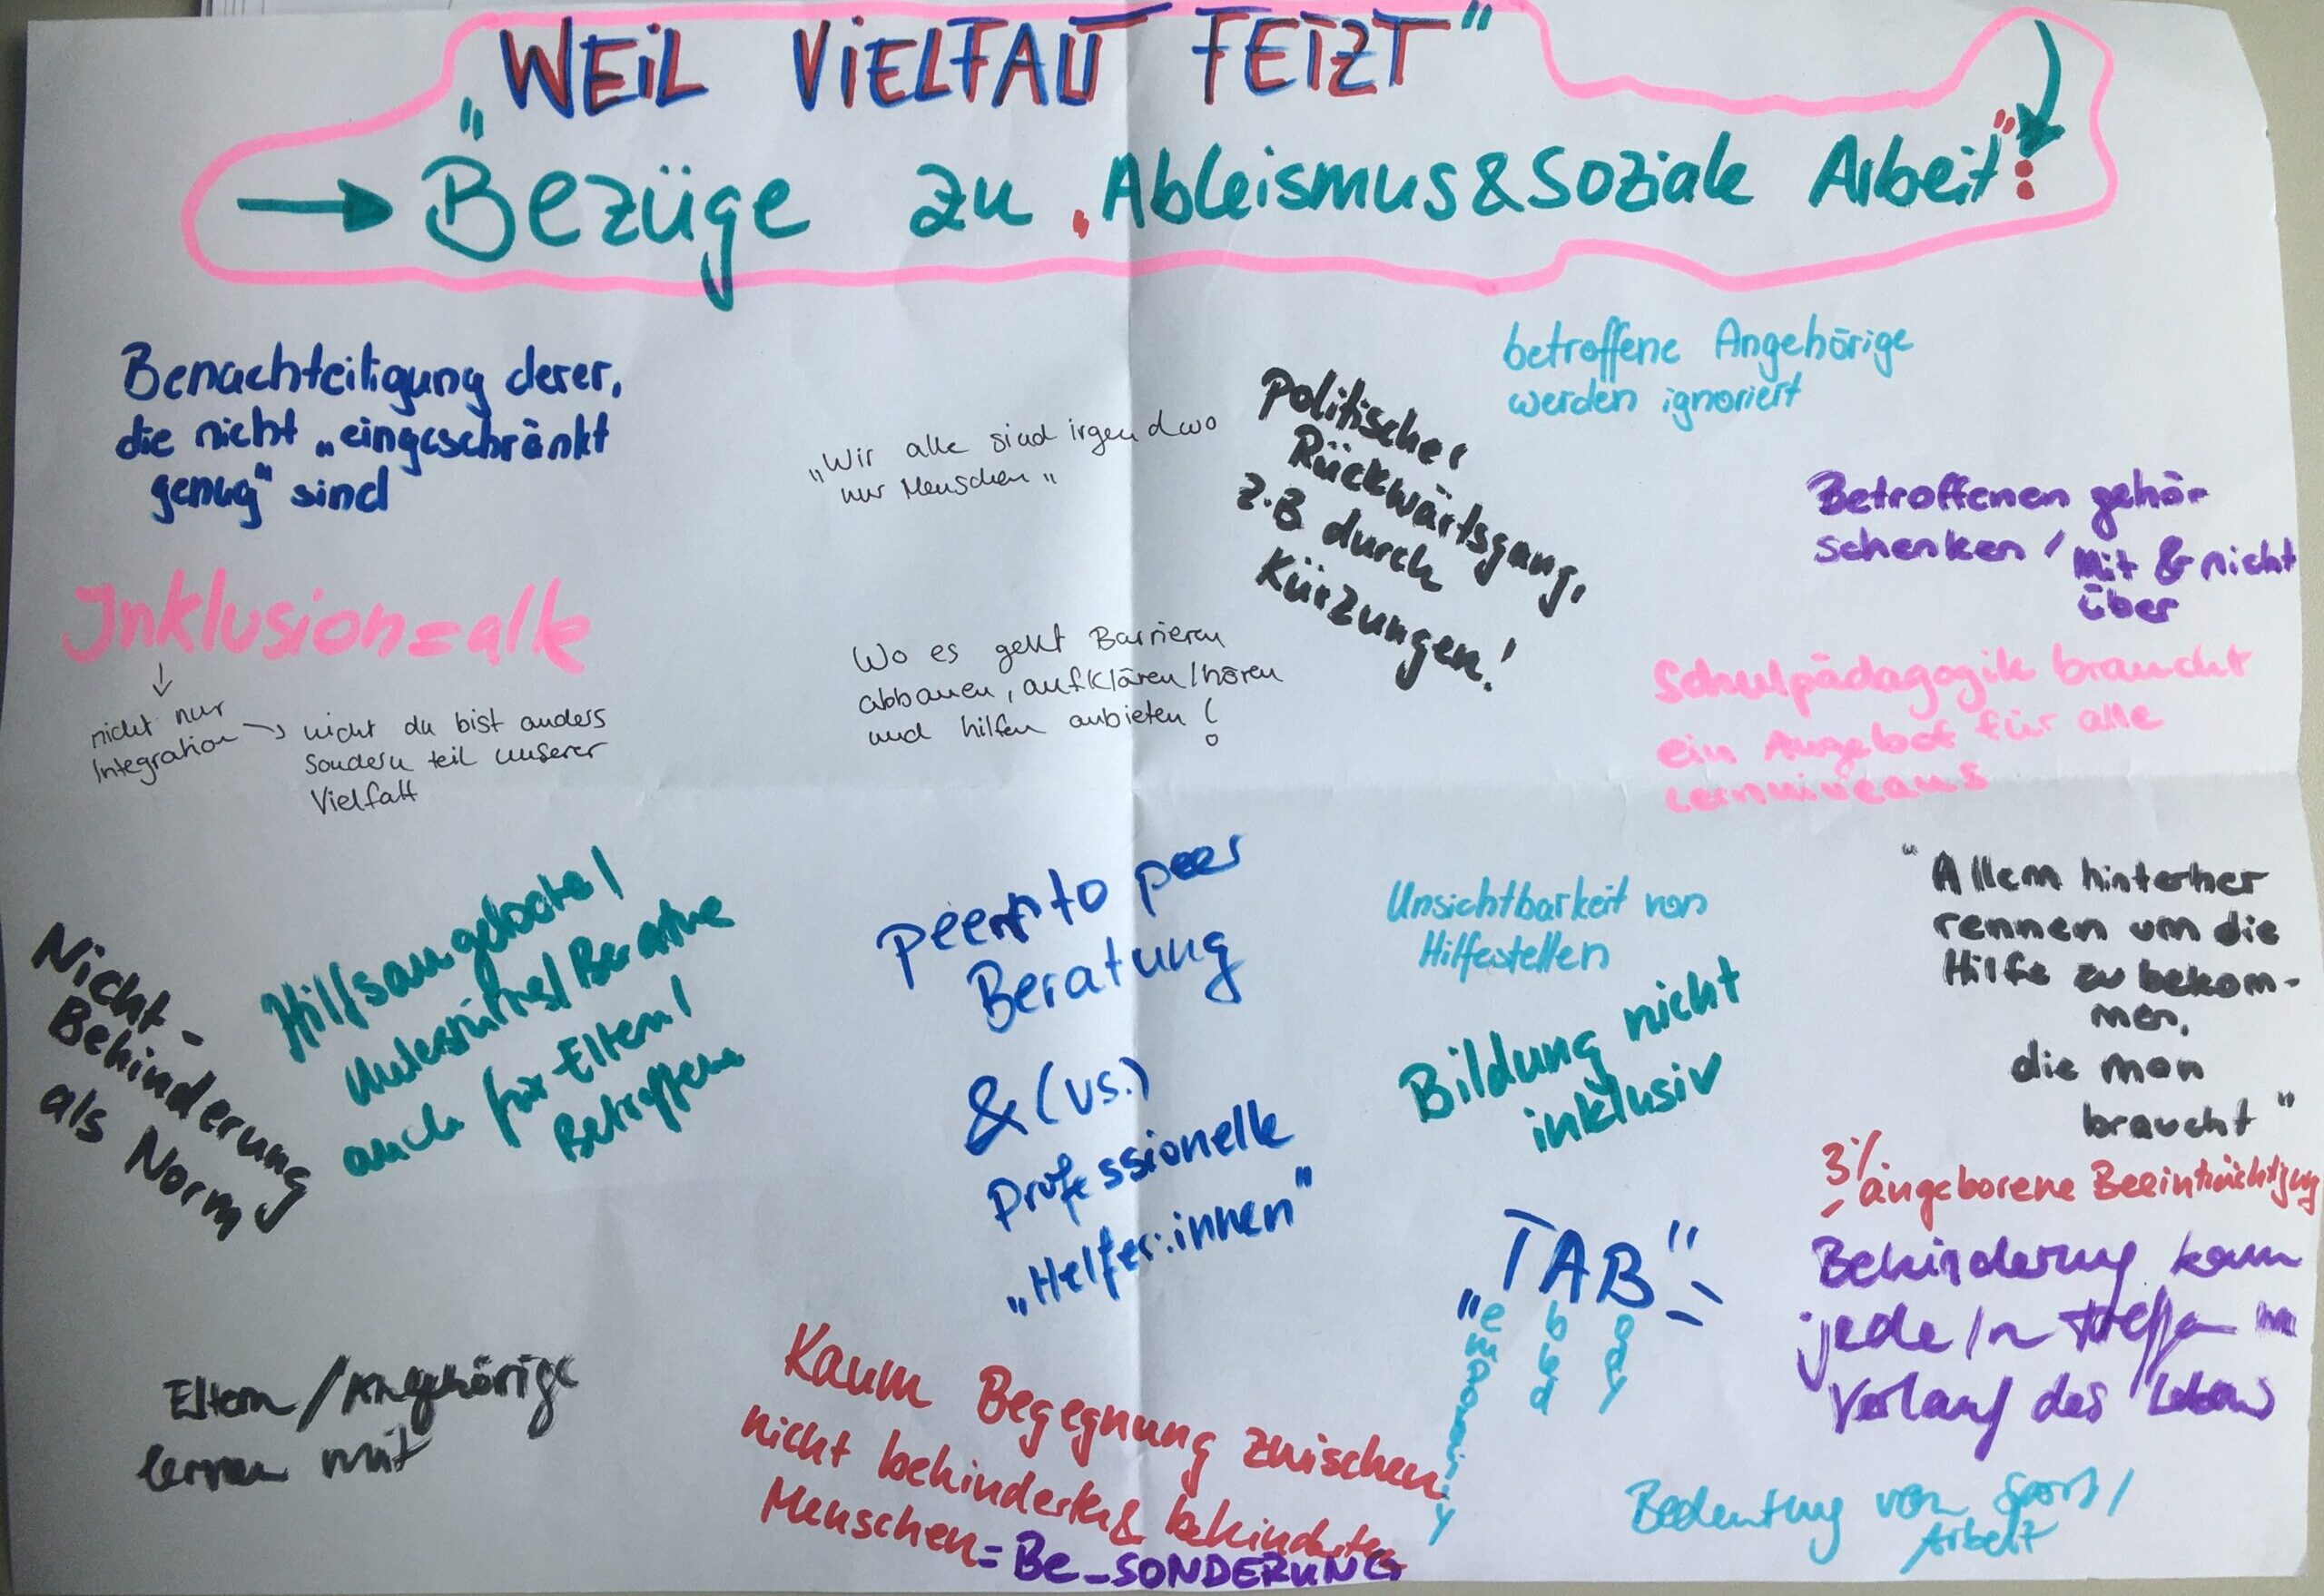 „WEiL ViELFALT FETZT“
→ Bezüge zu „Ableismus & Soziale Arbeit“:
Benachteiligung derer,
die nicht „eingeschränkt
genug“ sind
„Wir alle sind irgendwo
nur Menschen“
Politischer
Rückwärtsgang,
z.B durch
Kürzungen!
betroffene Angehörige
werden ignoriert
Betroffenen gehör
schenken / Mit & nicht
über
Inklusion = alle
↓
nicht nur
Integration → nicht du bist anders
sondern teil unserer
Vielfalt
Wo es geht Barrieren
abbauen, aufklären/hören
und hilfen anbieten!
Schulpädagogik braucht
ein Angebot für alle
Lernniveaus
Nicht-
Behinderung
als Norm
Hilfsangebote/
auch für Eltern/
Betroffene
Peer to peer
Beratung
& (vs.)
Professionelle
„Helfer:innen“
Unsichtbarkeit von
Hilfestellen
Bildung nicht
inklusiv
"Allem hinterher
rennen um die
Hilfe zu bekom-
men,
die man
braucht"
3% angeborene Beeinträchtigung
Behinderung kann
jede/n treffen im
Verlauf des Lebens
„TAB“
abled
body
Eltern/Angehörige
lernen mit
Kaum Begegnung zwischen
nicht behinderten & behinderten
Menschen = BE_SONDERUNG
Bedeutung von Sport/
Arbeit